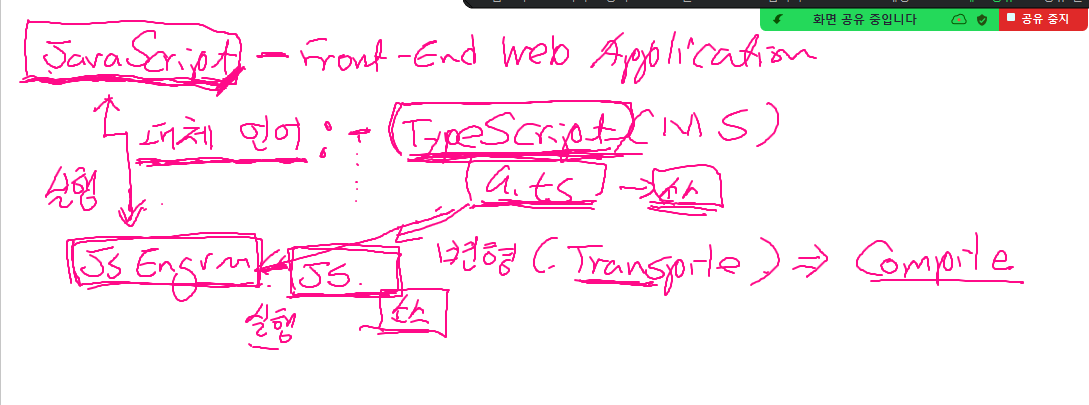 화면 공유 중입니다 공유 중지
JavaScript - Front-End Web Application
대체 언어 : - TypeScript (MS)
실행
a.ts → 소스
JS Engine JS 변형 (Transpile) ⇒ Compile
실행 소스